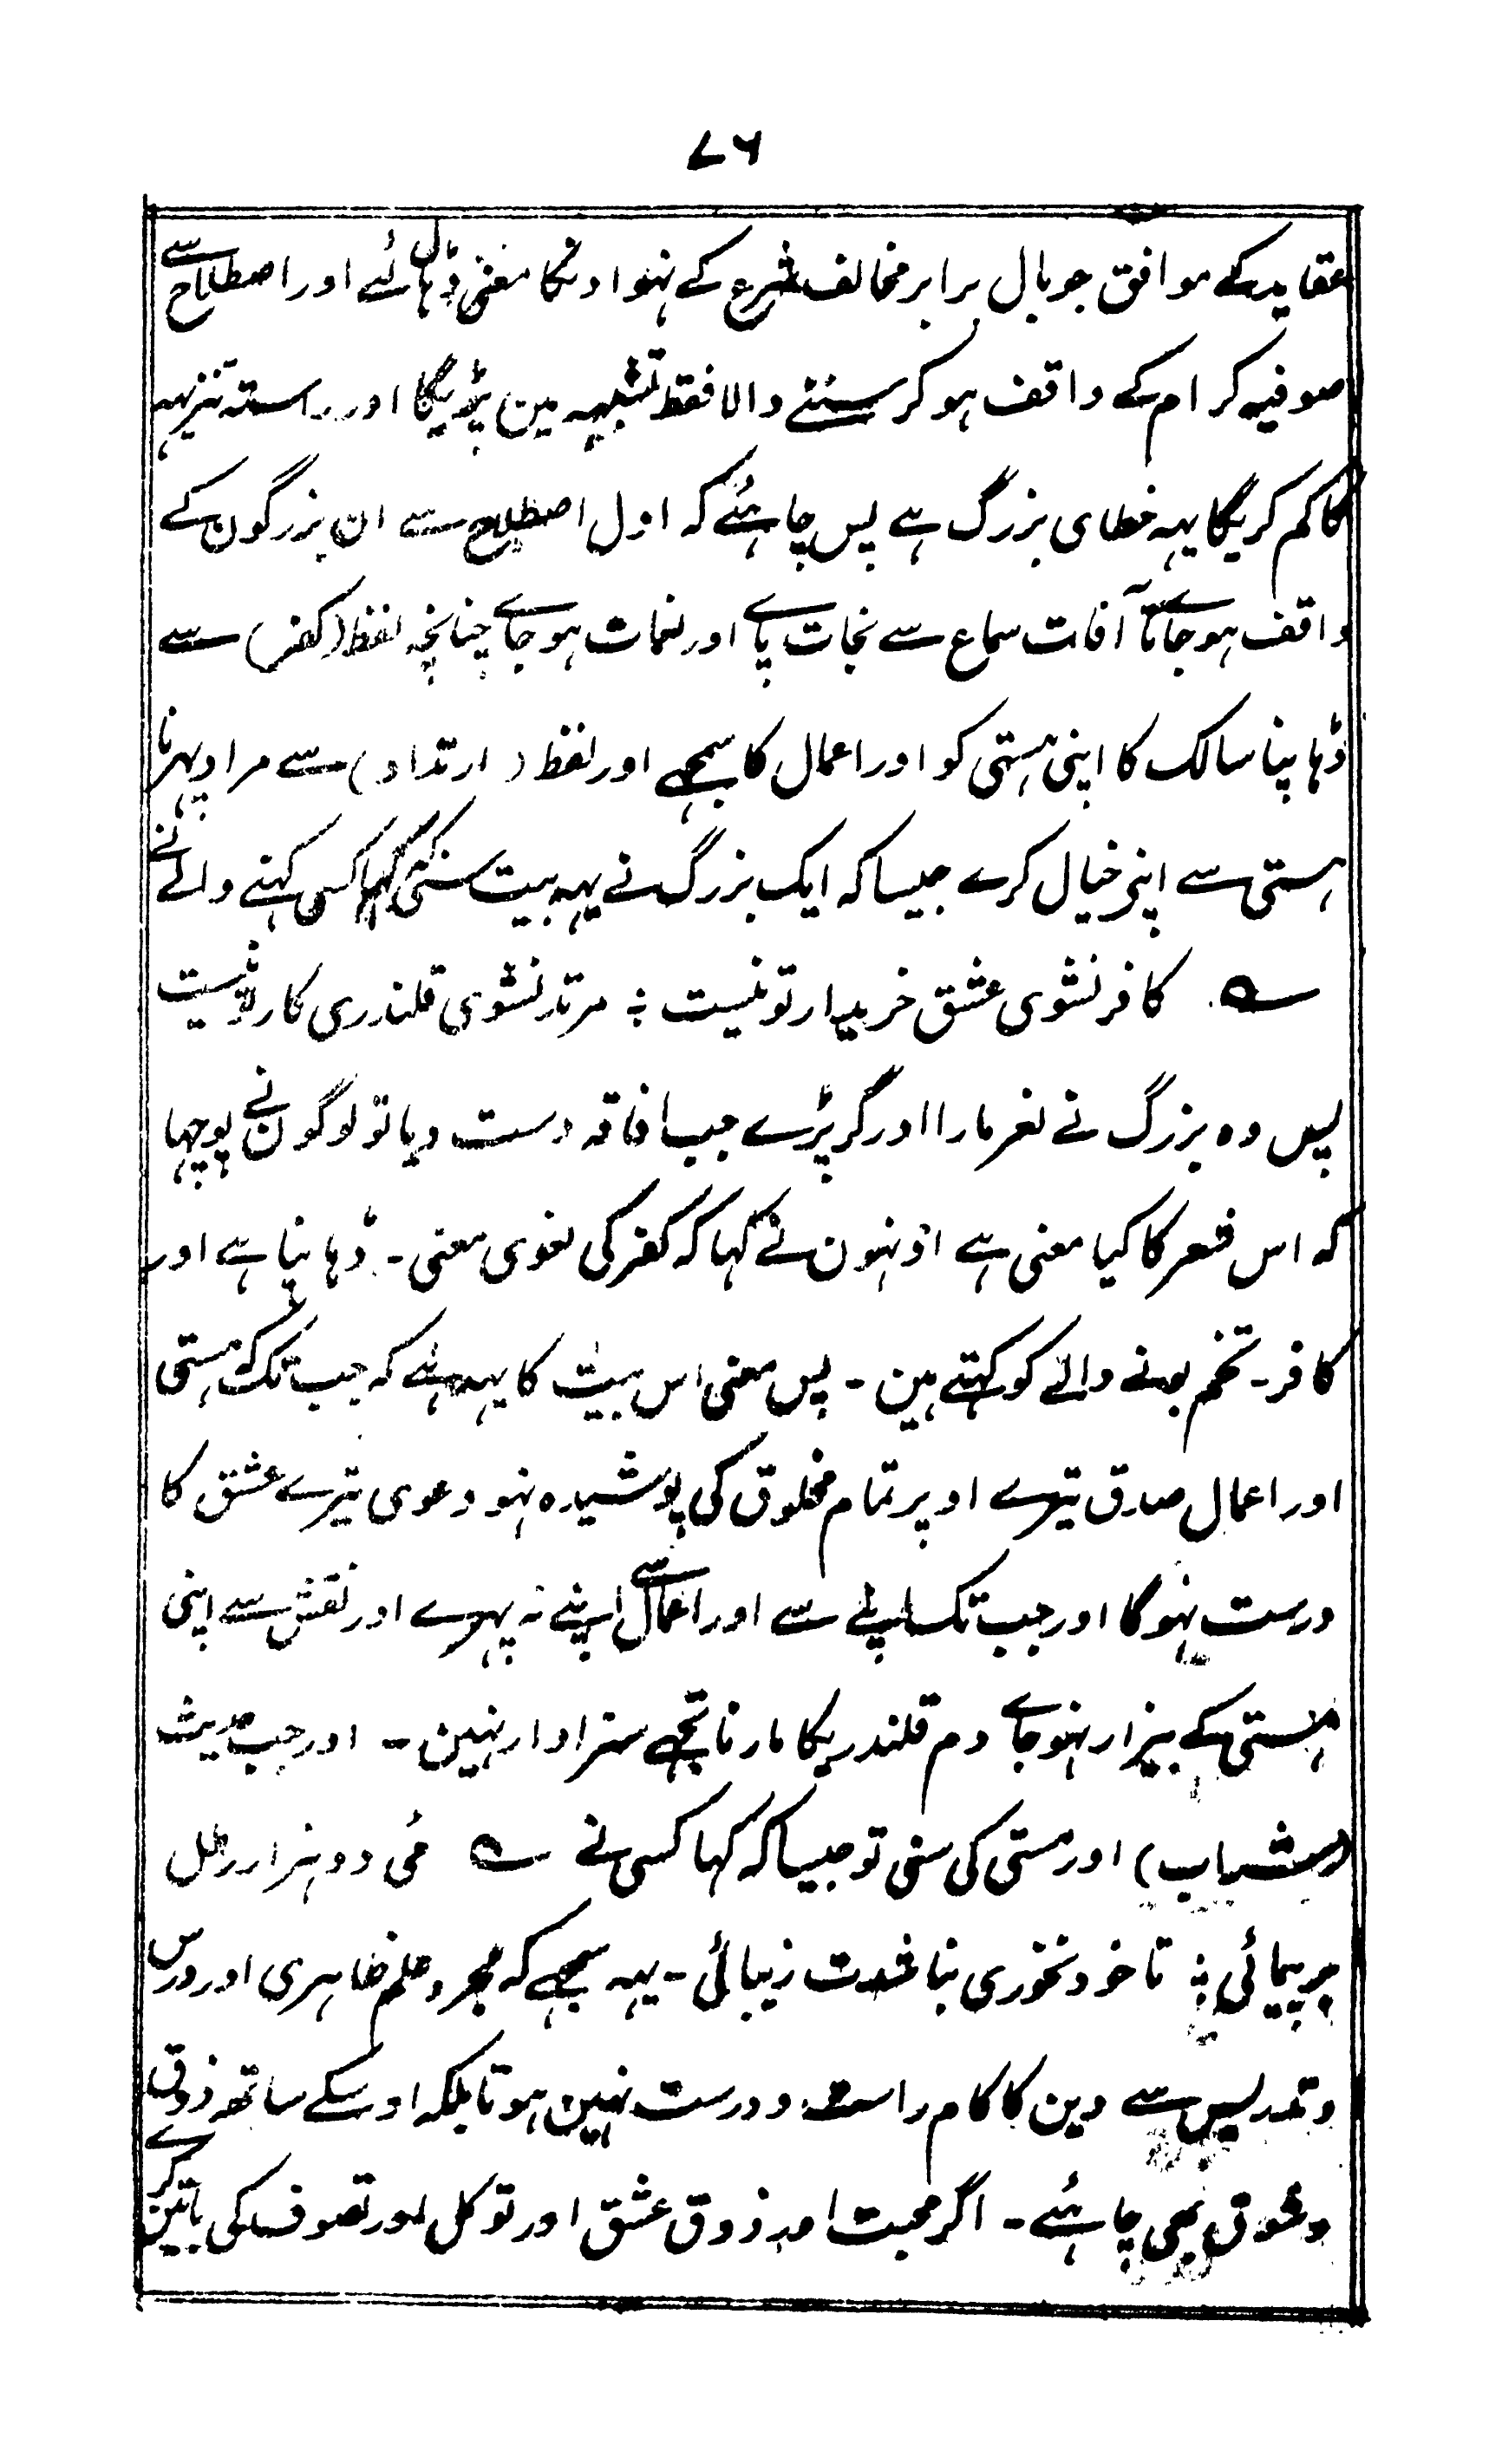 ۷۶
عقاید کے موافق جو بال برابر مخالف شرع کے نہو اونکا معنی ڈہالئے اور اصطلاح سے
صوفیہ کرام کے واقف ہو کر سننے والا فقط تشبہہ مین پڑیگا اور راستہ تنزیہہ
کا کم کریگا یہہ خطای بزرگ ہے پس چاہئے کہ اول اصطلاح سے ان بزرگون کے
واقف ہو جاے تا آفات سماع سے نجات پاے اور نعمات ہو جاے چنانچہ لفظ (کفر) سے
ڈہاپنا سالک کا اپنی ہستی کو اور اعمال کا سمجہے اور لفظ (ارتداد) سے مراد پہرنا
ہستی سے اپنی خیال کرے جیسا کہ ایک بزرگ نے یہہ بیت سنی کہا کسی کہنے والے نے
ـہ کافر نشوی عشق خریدار تو نیست ؛ مرتد نشوی قلندری کار تو نیست
پس وہ بزرگ نے نعر مارا اور گر پڑے جب افاقہ دست دیا تو لوگون نے پوچہا
کہ اس شعر کا کیا معنی ہے اونہون نے کہا کہ کفر کی لغوی معنی ۔ ڈہاپنا ہے اور
کافر ۔ تخم بونے والے کو کہتے ہین ۔ پس معنی اس بیت کا یہہ ہے کہ جب تک کہ ہستی
اور اعمال صدق تیرے اوپر تمام مخلوق کی پوشیدہ نہو دعوی تیرے عشق کا
درست نہوگا اور جب تک اپنے سے اور اعمال سے اپنے نہ پہرے اور نقش سے اپنی
ہستی کے بیزار نہو جاے دم قلندریکا مارنا تجہے سزاوار نہین ۔ اور جب حدیث
(شراب) اور مستی کی سنی تو جیسا کہ کہا کسی نے ـہ می دو ہزار رطل
بر پیمائی ؛ تا خود نخوری نباشدت زیبائی ۔ یہہ سمجہے کہ مجرد علم ظاہری اور درس
و تدریس سے دین کا کام راست و درست نہین ہوتا بلکہ اوسکے ساتھ ذوق
و شوق بہی چاہئے ۔ اگر محبت اور ذوق عشق اور توکل اور تصوف کی باتین کرے